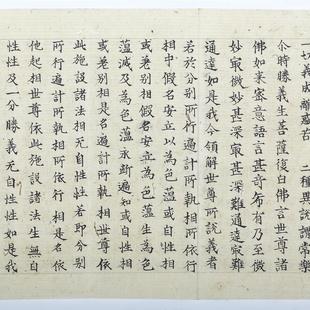 一切義成離惑苦　二種異說謂常樂
尒時勝義生菩薩復白佛言世尊諸
佛如來密意語言甚奇希有乃至微
妙㝡微妙甚深㝡甚深難通達㝡難
通達如是我今領解世尊所說義者
若於分別所行遍計所執相所依行
相中假名安立以為色蘊或自性相
或差別相假名安立為色蘊生為色
蘊滅及為色蘊永斷遍知或自性相
或差別相是名遍計所執相世尊依
此施設諸法相无自性性若即分別
所行遍計所執相所依行相是名依
他起相世尊依此施設諸法生無自
性性及一分勝義无自性性如是我